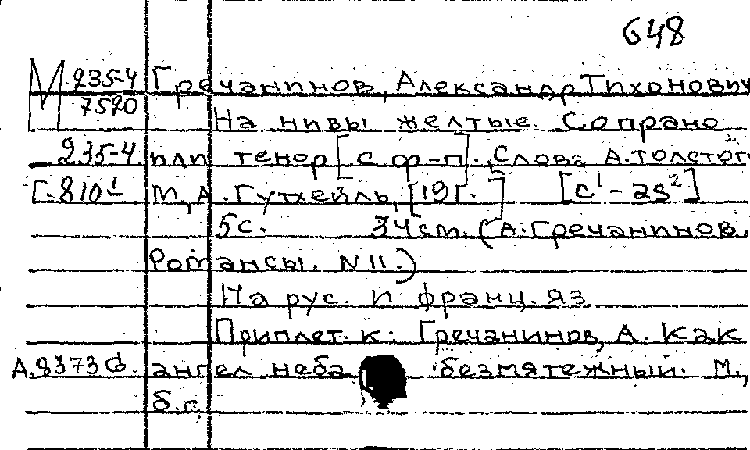 648
М 235-4 Гречанинов, Александр Тихонович
7590 На нивы желтые. Сопрано
235-4 или тенор [с ф-п]., Слова А. Толстог
Г-810¹ М., А. Гутхейль, [19 г. ] [c¹-as²]
5с. 34cm. (А. Гречанинов.
Романсы. N 11.)
На рус. и франц. яз.
Приплет. к: Гречанинов, А. Как
ангел неба безмятежный. М.,
б.г.